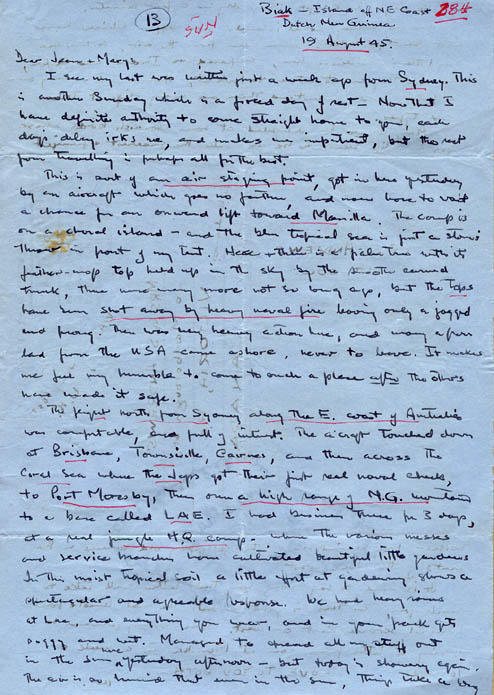 13
SUN
Biak - Island off NE Coast 28th
Dutch New Guinea
19 August 45.
Dear Jean + Marys
I see my last was written just a week ago from Sydney. This
is another Sunday which is a forced day of rest - Now that I
have definite authority to come straight home to you, each
days delay irks me, and makes me impatient, but the rest
from travelling is perhaps all for the best.
This is sort of an air staging point, got in here yesterday
by an aircraft which goes no further, and now have to wait
a chance for an onward lift toward Manilla. The camp is
on a choral island - and the blue tropical sea is just a stones
throw in front of my tent. Here + there is a palm tree with its
feather-mop top held up in the sky by the smooth curved
trunk, there were many more not so long ago, but the tops
have been shot away by heavy naval fire leaving only a jagged
end prong. There was very heavy action here, and many a fine
lad from the USA came ashore, never to leave. It makes
me feel very humble to come to such a place after the others
have made it safe.
The flight north from Sydney along the E. coast of Australia
was comfortable, and full of interest. The aircraft touched down
at Brisbane, Townsville, Cairnes, and then across the
Coral Sea where the Japs got their first real naval check,
to Port Moresby, then over a high range of N.G. mountains
to a base called LAE. I had business there for 3 days,
at a real jungle H.Q. camp - where the various messes
and service branches have cultivated beautiful little gardens
In this moist tropical soil a little effort at gardening shows a
spectacular and agreeable response. We had heavy rains
at Lae, and everything you wear, and in your pack gets
soggy and wet. Managed to spread all my stuff out
in the sun here yesterday afternoon - but today is showery again.
The air is so humid that even in the sun, things take a long